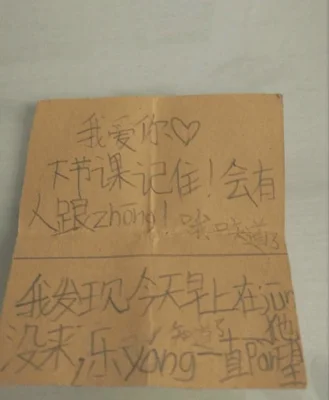 我爱你♡
下节课记住!会有
人跟zhōng!
我发现今天早上在jūn
没来,乐yōng一直pàn望
他